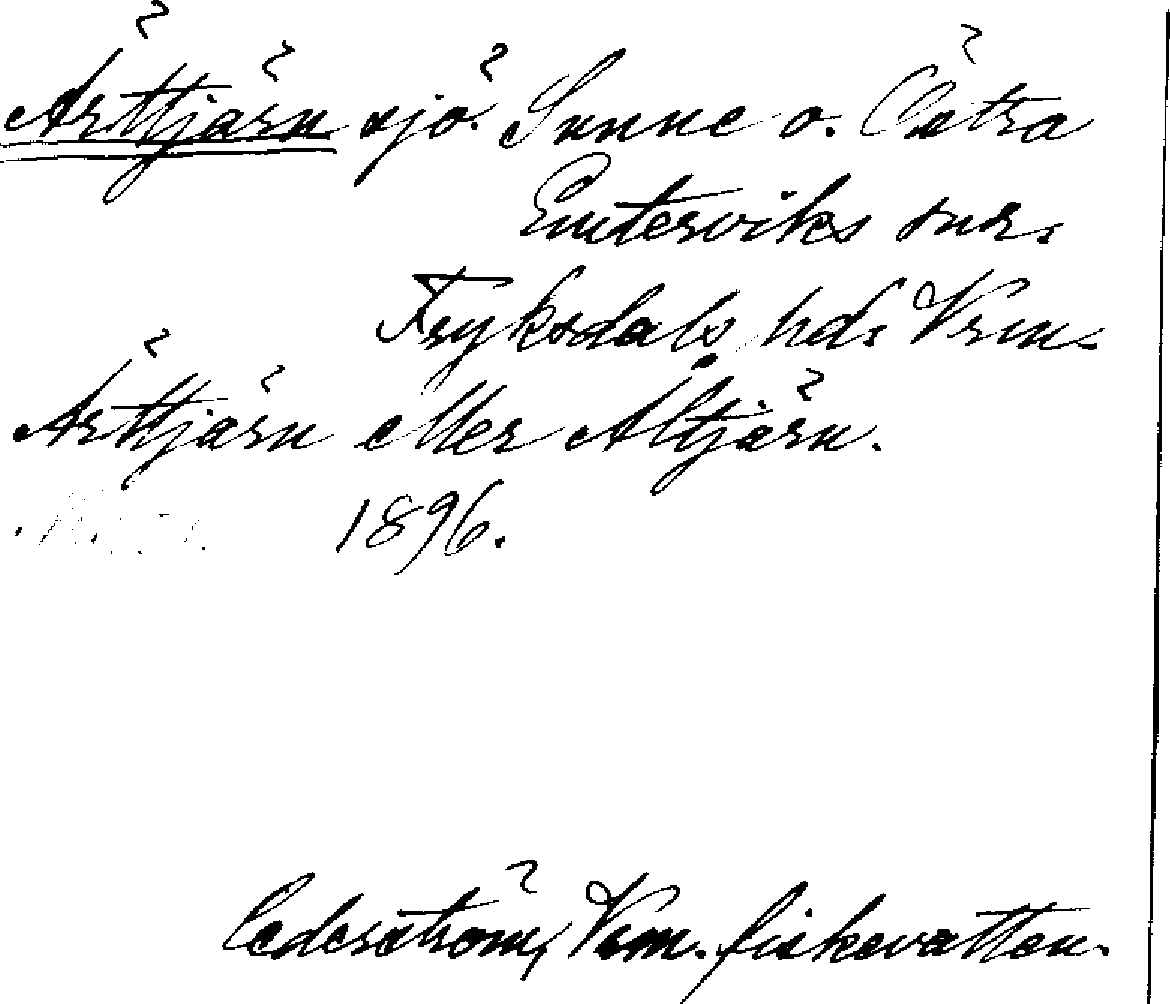 Ärttjärn sjö. Sunne o. Östra
Emterviks snr.
Fryksdals hd. Vrm.
Ärttjärn eller Åltjärn.
1896.
Cederström, Vrm. fiskevatten.